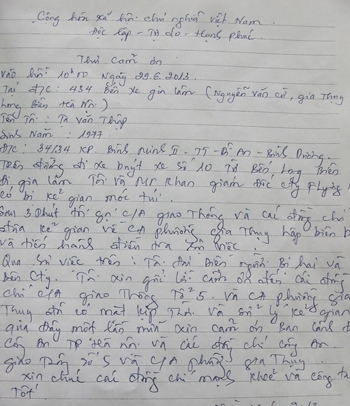 Cộng hòa xã hội chủ nghĩa Việt Nam
Độc lập - Tự do - Hạnh phúc
Thư cảm ơn
Vào hồi 10h00 Ngày 29.6.2013.
Tại Đ/C: 434 Bến xe gia lâm (Nguyễn Văn cừ, gia Thụy
Long Biên Hà Nội)
Tên Tôi: Tạ Văn Thập
Sinh Năm: 1977
Đ/C: 34/34 KP. Bình Minh II - TT - Dĩ An - Bình Dương.
Trên đường đi xe buýt xe số 10 từ Long Biên
đi gia lâm Tôi và Mr Khan giám đốc cty
có bị kẻ gian móc túi.
Sau 3 Phút thì gọi C/A giao Thông và các đồng chí
đưa kẻ gian về CA phường gia Thụy lập biên b
và tiến hành điều tra làm việc.
Qua sự việc trên. Tôi đại Diện người Bị hại và
bên Cty. Tôi xin gửi lời cảm ơn đến các đồng
chí C/A giao Thông Tổ 5. và CA phường gia
Thụy đã có mặt kịp Thời và xử lý kẻ gian
qua đây một lần nữa xin cảm ơn Ban lãnh đ
Công An TP Hà Nội và các đồng chí công An
giao Thông số 5 và C/A phường gia Thụy.
xin chúc các đồng chí mạnh khoẻ và công t
Tốt